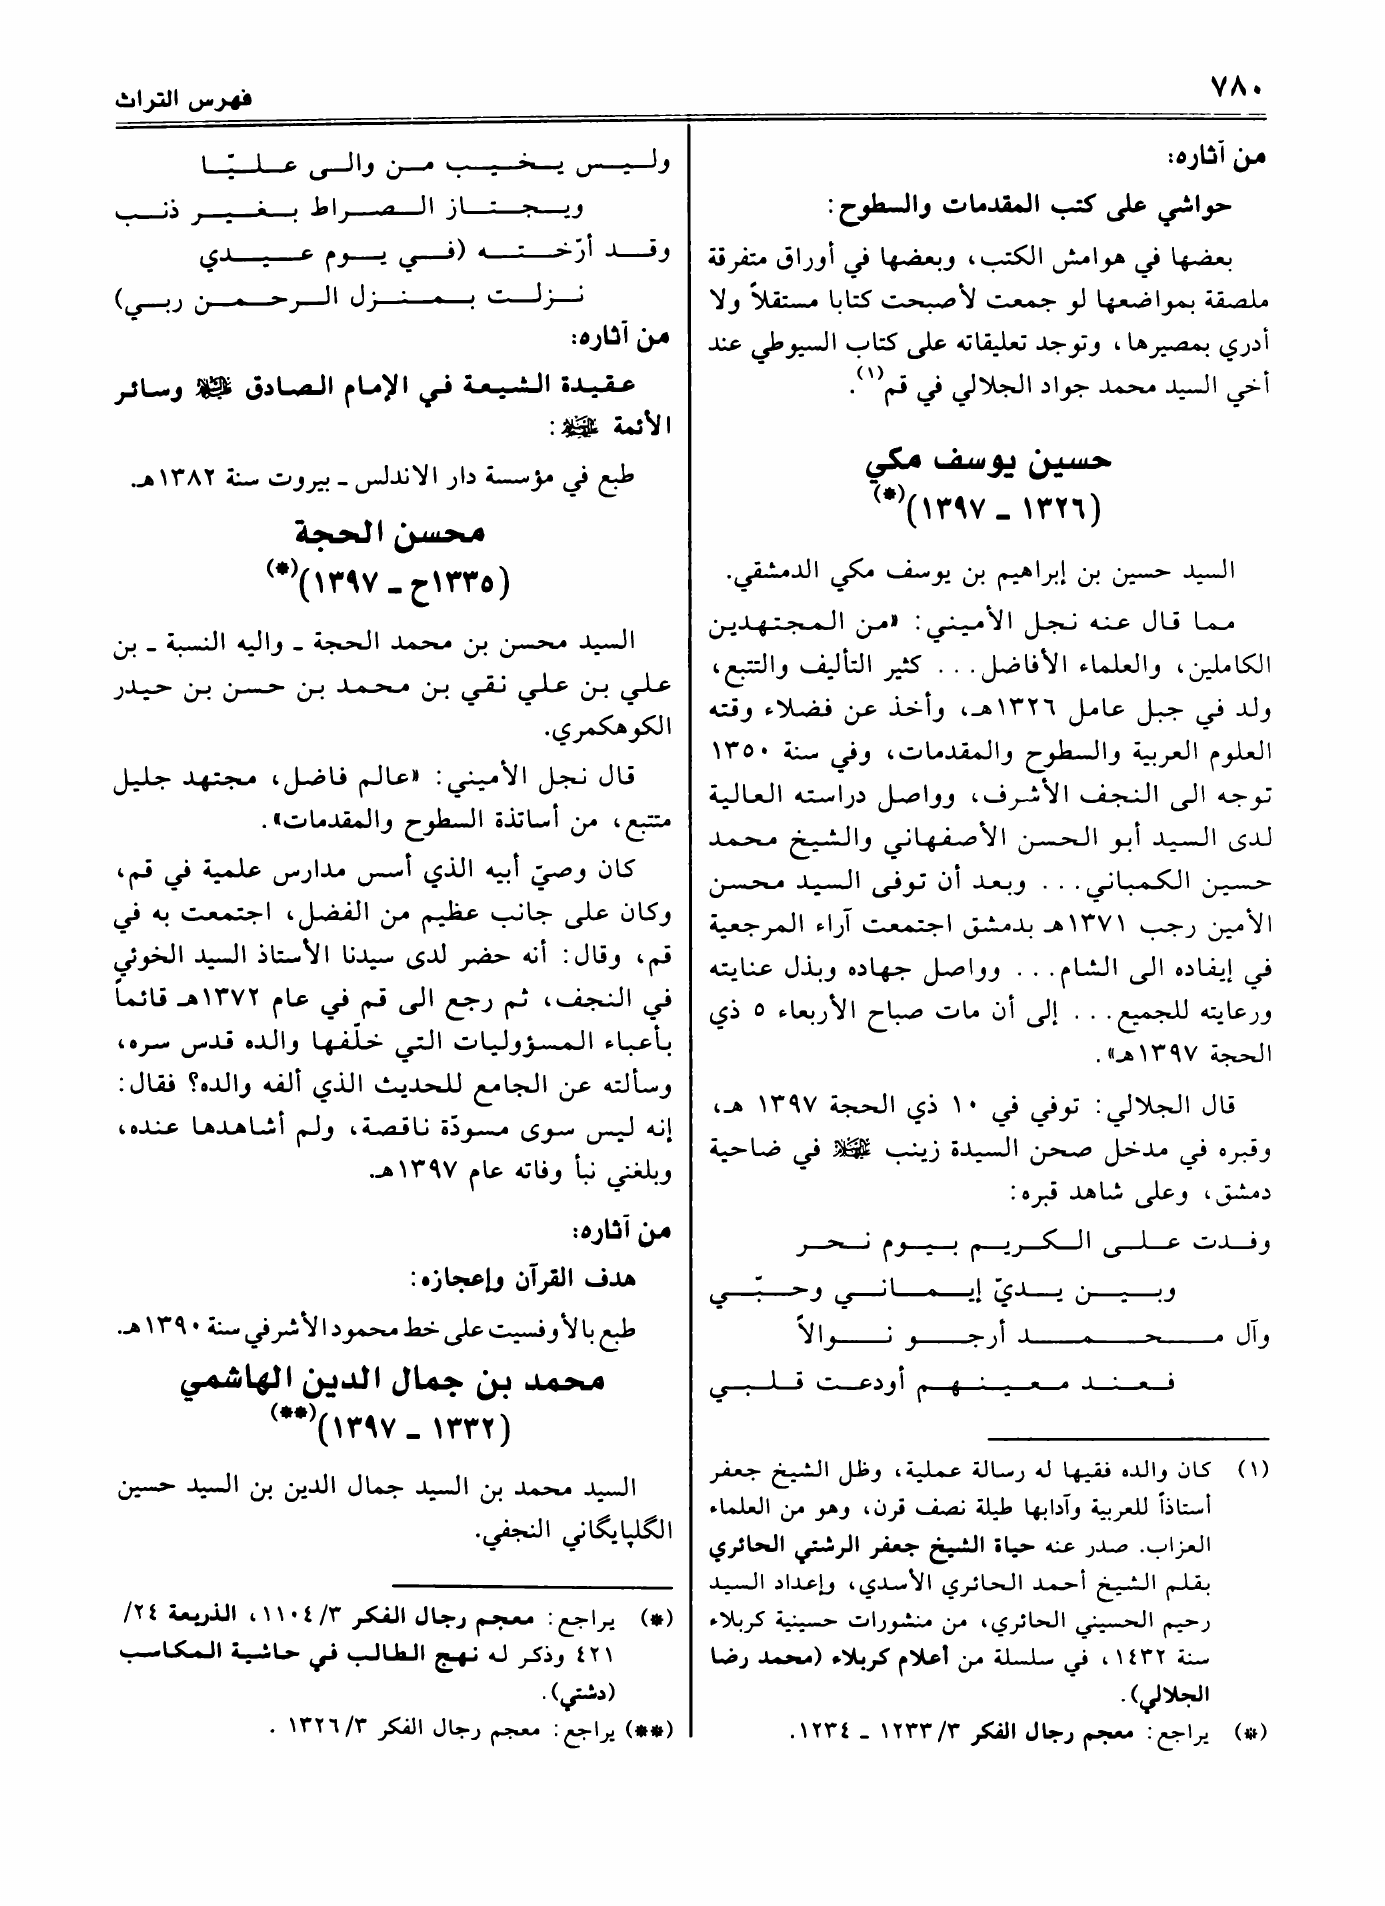 ٧٨٠
فهرس التراث
من آثاره:
حواشي على كتب المقدمات والسطوح:
بعضها في هوامش الكتب، وبعضها في أوراق متفرقة
ملصقة بمواضعها لو جمعت لأصبحت كتابا مستقلاً ولا
أدري بمصيرها، وتوجد تعليقاته على كتاب السيوطي عند
أخي السيد محمد جواد الجلالي في قم(١).
حسين يوسف مكي
(١٣٢٦ ـ ١٣٩٧)(*)
السيد حسين بن إبراهيم بن يوسف مكي الدمشقي.
مما قال عنه نجل الأميني: «من المجتهدين
الكاملين، والعلماء الأفاضل... كثير التأليف والتتبع،
ولد في جبل عامل ١٣٢٦هـ، وأخذ عن فضلاء وقته
العلوم العربية والسطوح والمقدمات، وفي سنة ١٣٥٠
توجه الى النجف الأشرف، وواصل دراسته العالية
لدى السيد أبو الحسن الأصفهاني والشيخ محمد
حسين الكمباني... وبعد أن توفى السيد محسن
الأمين رجب ١٣٧١هـ بدمشق اجتمعت آراء المرجعية
في إيفاده الى الشام... وواصل جهاده وبذل عنايته
ورعايته للجميع... إلى أن مات صباح الأربعاء ٥ ذي
الحجة ١٣٩٧هـ».
قال الجلالي: توفي في ١٠ ذي الحجة ١٣٩٧ هـ،
وقبره في مدخل صحن السيدة زينب في ضاحية
دمشق، وعلى شاهد قبره:
وفدت على الكريم بيوم نحر
وبين يديّ إيماني وحبّي
وآل محمد أرجو نوالاً
فعند معينهم أودعت قلبي
(١) كان والده فقيها له رسالة عملية، وظل الشيخ جعفر
أستاذاً للعربية وآدابها طيلة نصف قرن، وهو من العلماء
العزاب. صدر عنه حياة الشيخ جعفر الرشتي الحائري
بقلم الشيخ أحمد الحائري الأسدي، وإعداد السيد
رحيم الحسيني الحائري، من منشورات حسينية كربلاء
سنة ١٤٣٢، في سلسلة من أعلام كربلاء (محمد رضا
الجلالي).
(*) يراجع: معجم رجال الفكر ٣/ ١٢٣٣ ـ ١٢٣٤.
وليس يخيب من والى عليّا
ويجتاز الصراط بغير ذنب
وقد أرّخته (في يوم عيدي
نزلت بمنزل الرحمن ربي)
من آثاره:
عقيدة الشيعة في الإمام الصادق وسائر
الأئمة :
طبع في مؤسسة دار الاندلس ـ بيروت سنة ١٣٨٢هـ.
محسن الحجة
(١٣٣٥ح ـ ١٣٩٧)(*)
السيد محسن بن محمد الحجة ـ واليه النسبة ـ بن
علي بن علي نقي بن محمد بن حسن بن حيدر
الكوهكمري.
قال نجل الأميني: «عالم فاضل، مجتهد جليل
متتبع، من أساتذة السطوح والمقدمات».
كان وصيّ أبيه الذي أسس مدارس علمية في قم،
وكان على جانب عظيم من الفضل، اجتمعت به في
قم، وقال: أنه حضر لدى سيدنا الأستاذ السيد الخوئي
في النجف، ثم رجع الى قم في عام ١٣٧٢هـ قائماً
بأعباء المسؤوليات التي خلّفها والده قدس سره،
وسألته عن الجامع للحديث الذي ألفه والده؟ فقال:
إنه ليس سوى مسودّة ناقصة، ولم أشاهدها عنده،
وبلغني نبأ وفاته عام ١٣٩٧هـ.
من آثاره:
هدف القرآن وإعجازه:
طبع بالأوفسيت على خط محمود الأشرفي سنة ١٣٩٠هـ.
محمد بن جمال الدين الهاشمي
(١٣٣٢ ـ ١٣٩٧)(**)
السيد محمد بن السيد جمال الدين بن السيد حسين
الگلپايگاني النجفي.
(*) يراجع: معجم رجال الفكر ٣/ ١١٠٤، الذريعة ٢٤/
٤٢١ وذكر له نهج الطالب في حاشية المكاسب
(دشتي).
(**) يراجع: معجم رجال الفكر ٣/ ١٣٢٦ .